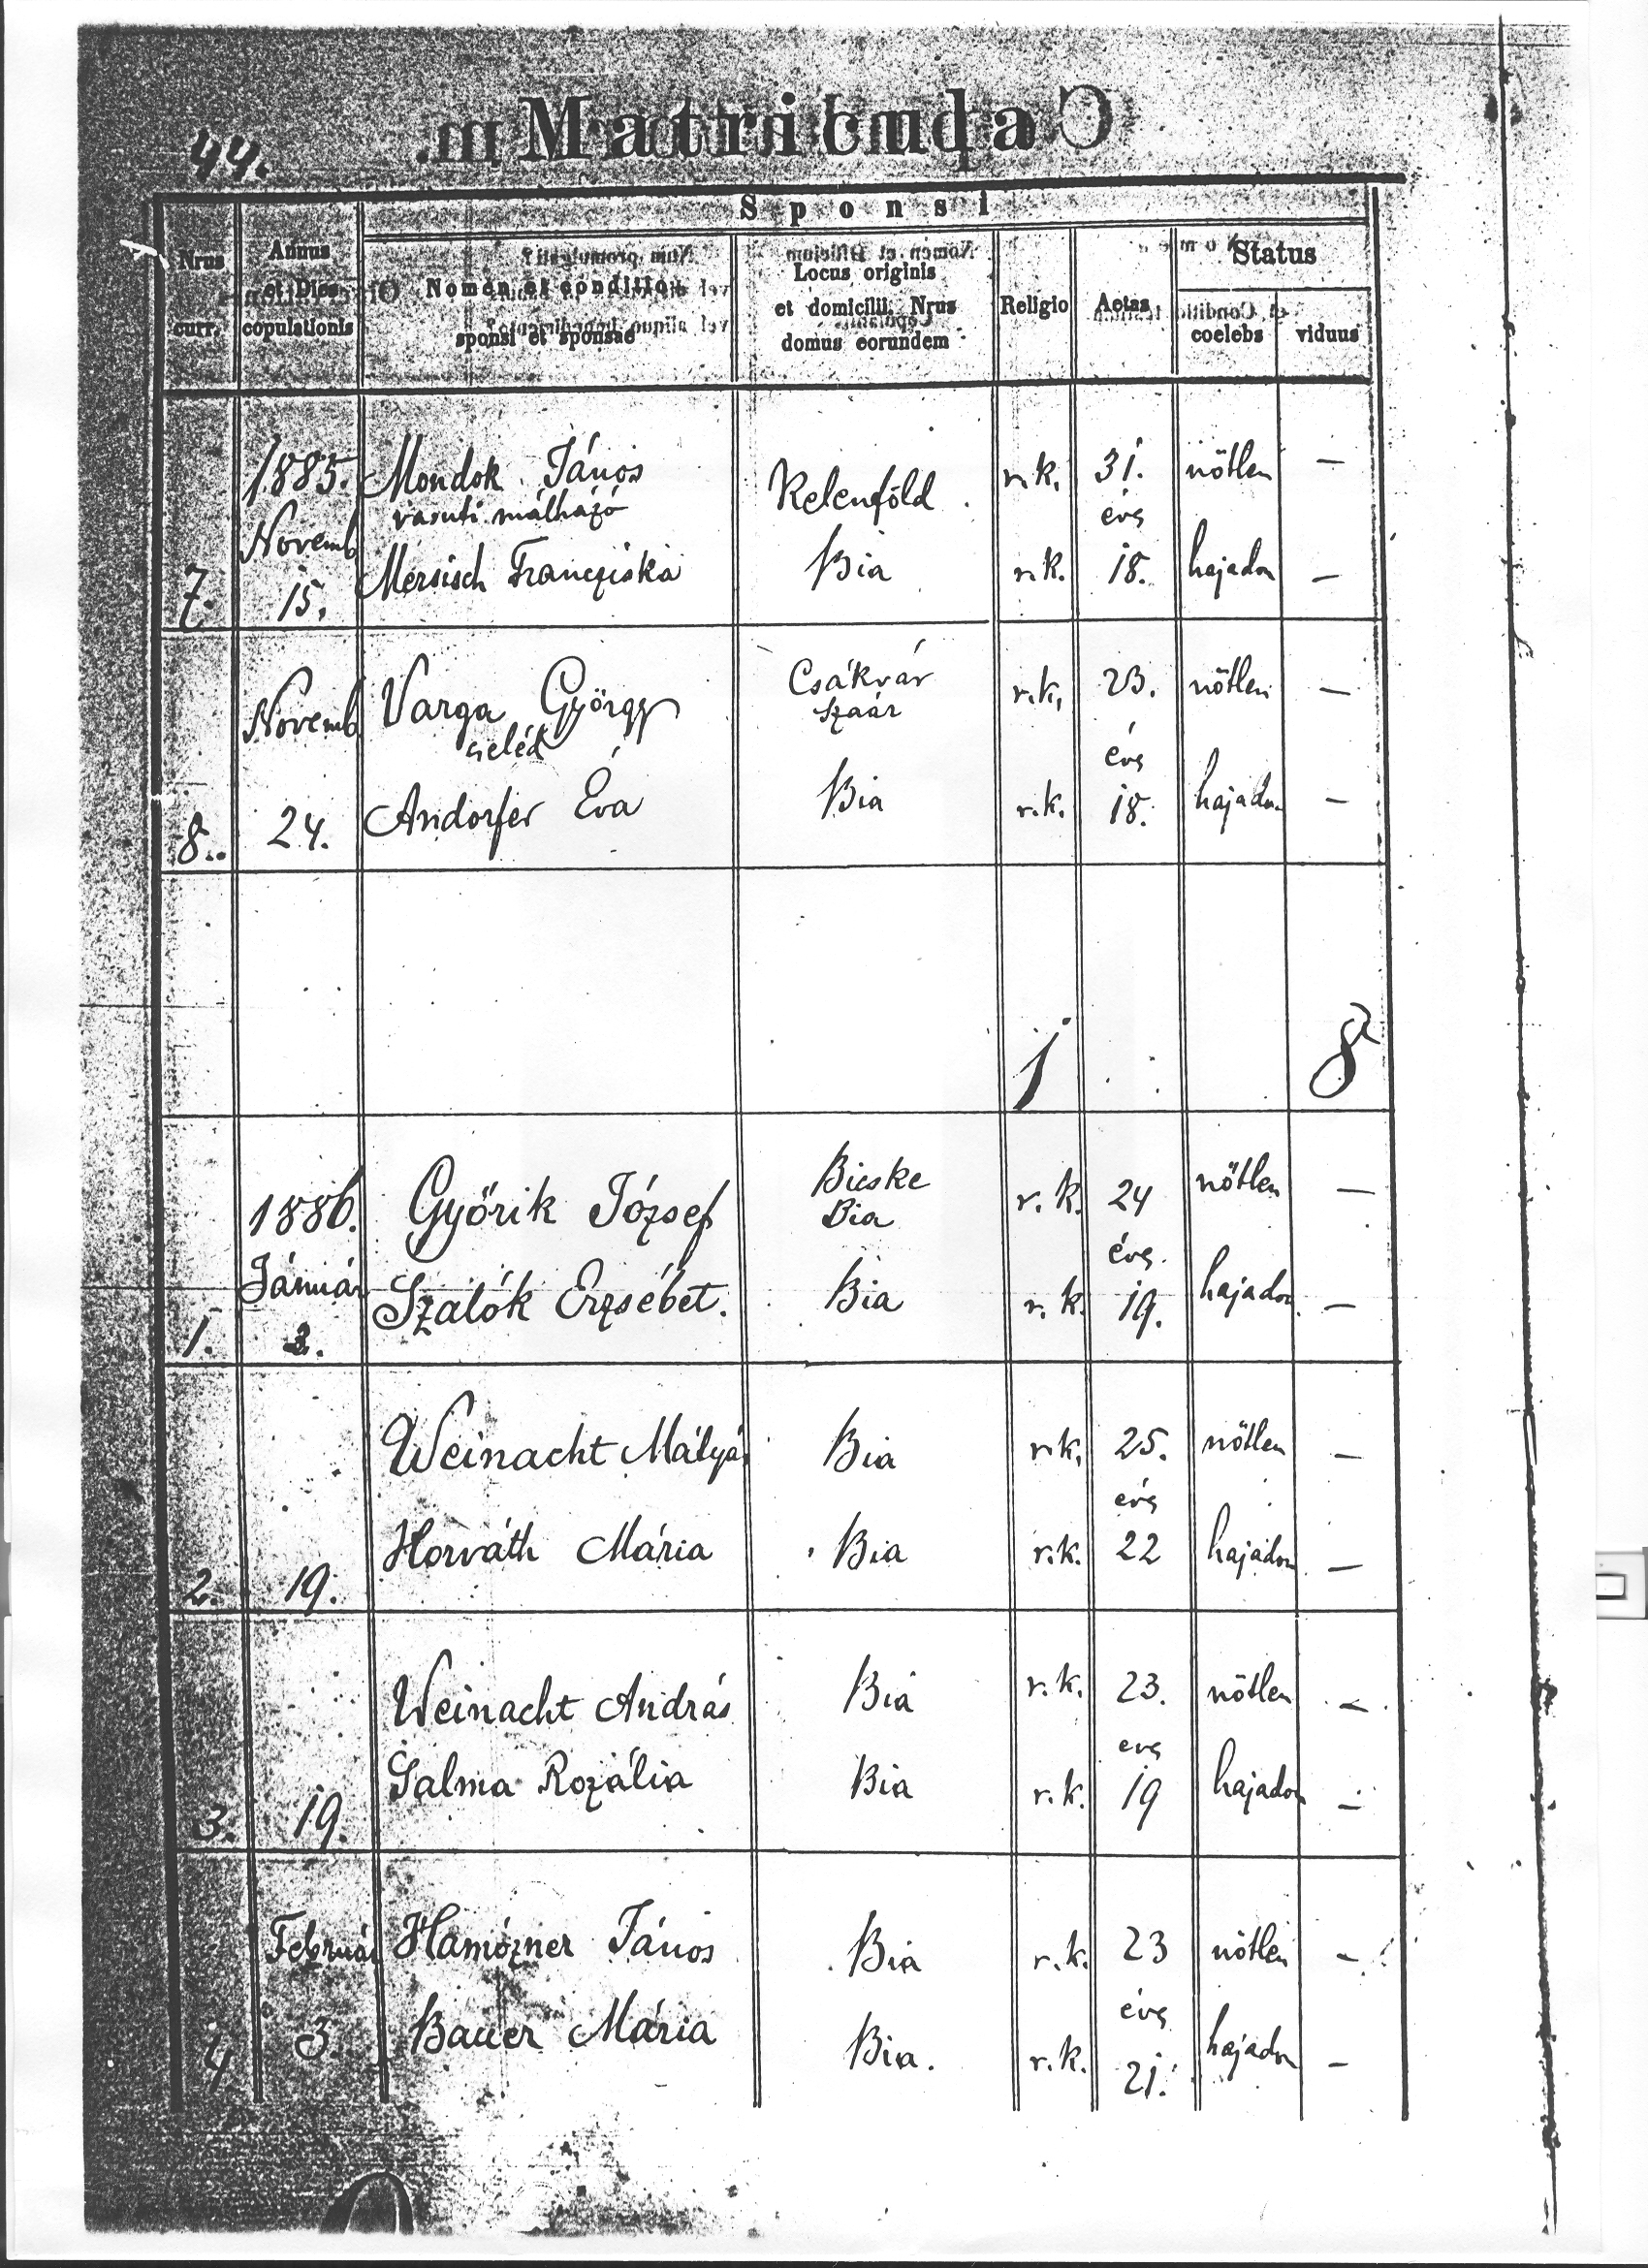 44. Matri
Sponsi
Nrus curr.
Annus et Dies copulationis
Nomen et conditio sponsi et sponsae
Locus originis et domicilii, Nrus domus eorundem
Religio
Aetas
Status
coelebs
viduus
1885. Mondok János Kelenföld r.k. 31. nötlen —
vasuti málházó évs
Novemb
Mersisch Francziska Bia r.k. 18. hajadon —
7. 15.
Varga György Csákvár r.k. 23. nötlen —
Novemb cseléd Szaár
évs
Andorfer Éva Bia r.k. 18. hajadon —
8. 24.
1 8
1886. Győrik József Bicske r.k. 24 nőtlen —
Bia
évs.
Január Szalók Erzsébet. Bia r.k. 19. hajadon —
1.
Weinacht Mátyás Bia r.k. 25. nőtlen —
évs
Horváth Mária Bia r.k. 22 hajadon —
2. 19.
Weinacht András Bia r.k. 23. nötlen —
evs
Rozália Bia r.k. 19 hajadon —
3. 19.
Február János Bia r.k. 23 nötlen —
évs
3. Bauer Mária Bia. r.k. 21. hajadon —
4